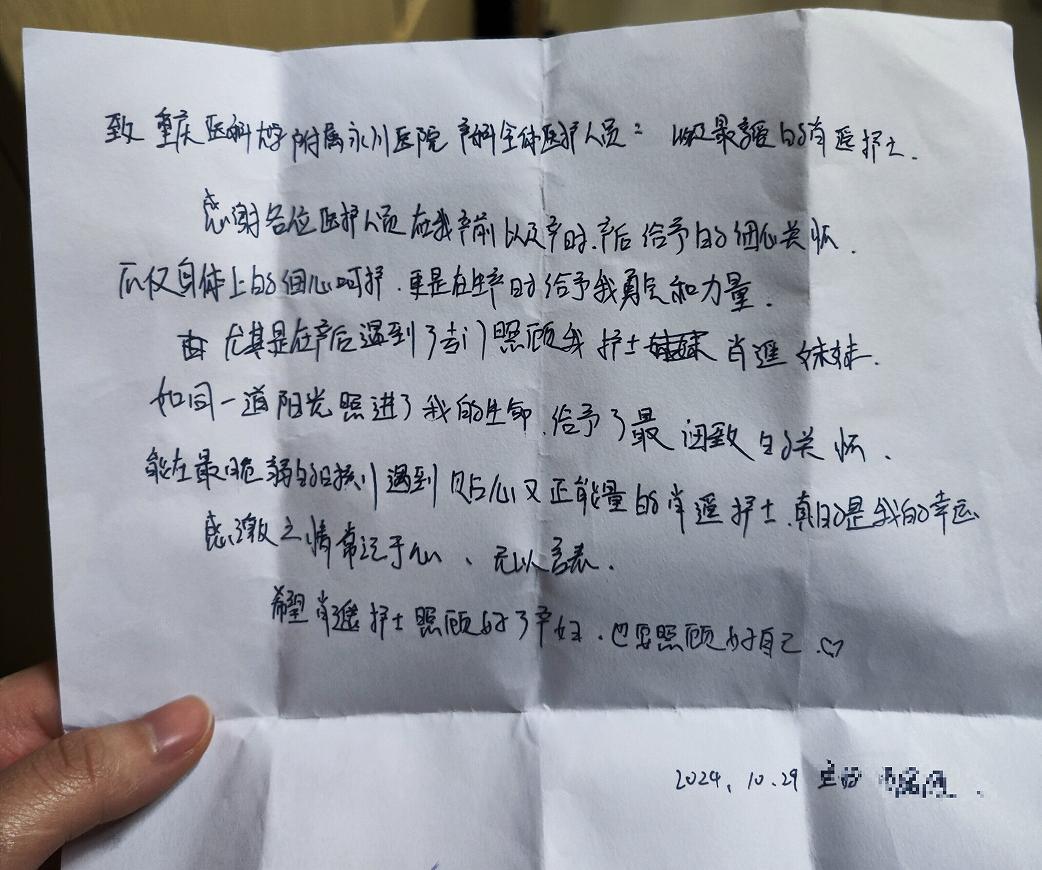 致 重庆医科大学附属永川医院 产科全体医护人员: 以及最亲爱的肖遥护士.
感谢各位医护人员在我产前以及产时.产后给予的细心关怀.
不仅身体上的细心呵护.更是在生产时给予我勇气和力量.
尤其是在产后遇到了专门照顾我 护士 肖遥 妹妹.
如同一道阳光照进了我的生命.给予了最 细致的关怀.
能在最脆弱的时候遇到贴心又正能量的肖遥护士.真的是我的幸运
感激之情常记于心、无以言表.
希望肖遥护士照顾好了产妇.也要照顾好自己.♡
2024.10.29